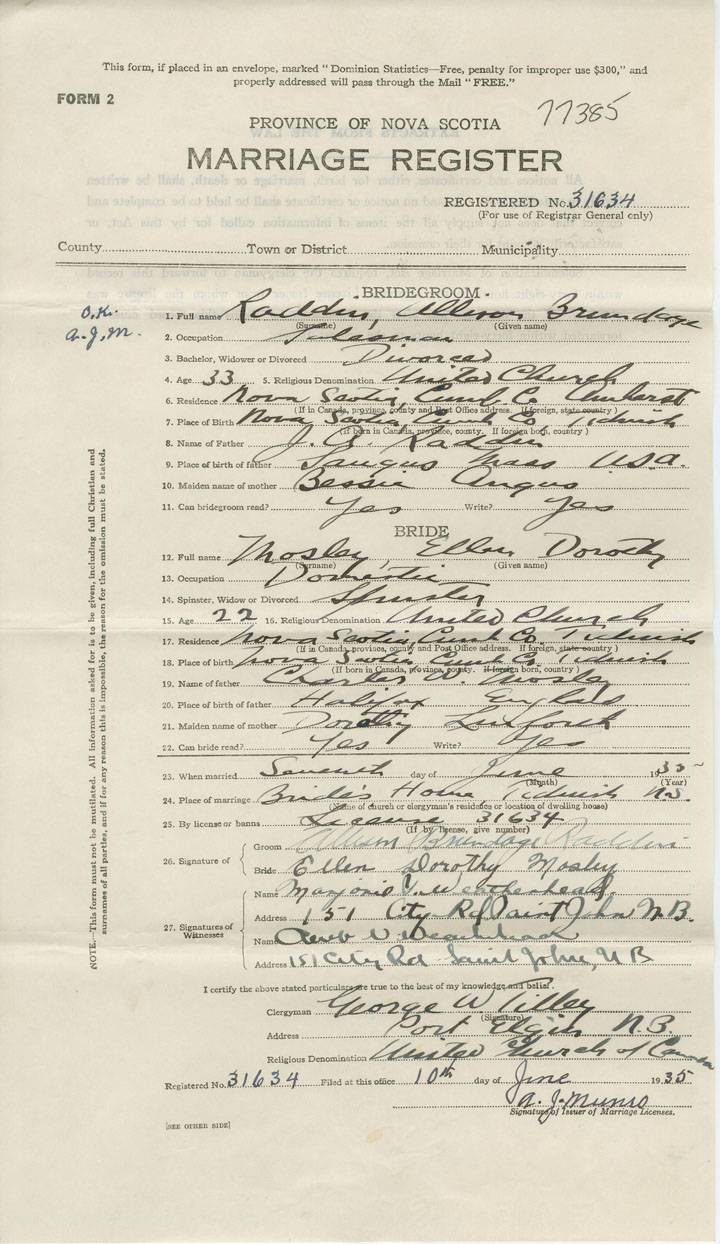 This form, if placed in an envelope, marked "Dominion Statistics—Free, penalty for improper use $300," and
properly addressed will pass through the Mail "FREE."
FORM 2
77385
PROVINCE OF NOVA SCOTIA
MARRIAGE REGISTER
REGISTERED No. 31634
(For use of Registrar General only)
County Town or District Municipality
O.K.
A.J.M.
BRIDEGROOM
1. Full name Raddin, Allison Brundage
(Surname) (Given name)
2. Occupation Salesman
3. Bachelor, Widower or Divorced Divorced
4. Age 33 5. Religious Denomination United Church
6. Residence Nova Scotia, Cumb Co Amherst
(If in Canada, province, county and Post Office address. If foreign, state country)
7. Place of Birth Nova Scotia, Cumb Co Tidnish
(If born in Canada, province, county. If foreign born, country)
8. Name of Father J. Raddin
9. Place of birth of father Saugus Mass U.S.A.
10. Maiden name of mother Bessie Angus
11. Can bridegroom read? Yes Write? Yes
BRIDE
12. Full name Mosley, Ellen Dorothy
(Surname) (Given name)
13. Occupation Domestic
14. Spinster, Widow or Divorced Spinster
15. Age 22 16. Religious Denomination United Church
17. Residence Nova Scotia, Cumb Co. Tidnish
(If in Canada, province, county and Post Office address. If foreign, state country)
18. Place of birth Nova Scotia, Cumb Co. Tidnish
(If born in Canada, province, county. If foreign born, country)
19. Name of father Charles Mosley
20. Place of birth of father Halifax England
21. Maiden name of mother Dorothy
22. Can bride read? Yes Write? Yes
23. When married Seventh day of June 1935
(Month) (Year)
24. Place of marriage Bride's Home, Tidnish N.S.
(Name of church or clergyman's residence or location of dwelling house)
25. By license or banns License 31634
(If by license, give number)
26. Signature of
Groom Allison Brundage Raddin
Bride Ellen Dorothy Mosley
27. Signatures of Witnesses
Name Marjorie V. Weatherhead
Address 151 City Rd Saint John N.B.
Name Weatherhead
Address 151 City Rd Saint John, N B
I certify the above stated particulars are true to the best of my knowledge and belief.
Clergyman George W Tilley
(Signature)
Address Port Elgin N.B.
Religious Denomination United Church of Canada
Registered No. 31634 Filed at this office 10th day of June 1935
A. J. Munro
Signature of Issuer of Marriage Licenses.
[SEE OTHER SIDE]
NOTE.—This form must not be mutilated. All information asked for is to be given, including full Christian and
surnames of all parties, and if for any reason this is impossible, the reason for the omission must be stated.